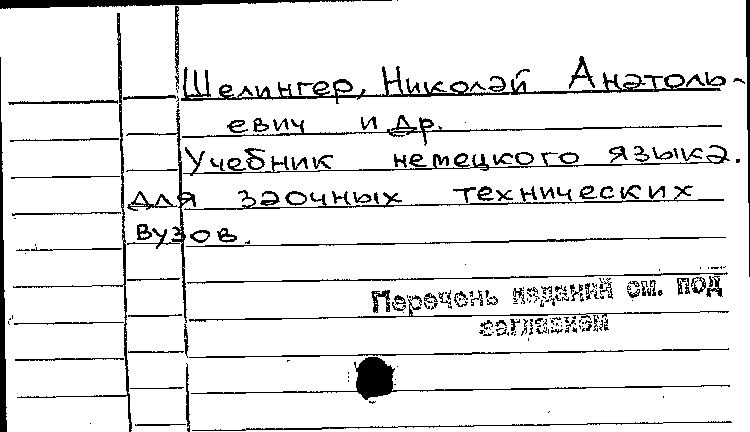 Шелингер, Николай Анатоль-
евич и др.
Учебник немецкого языка.
для заочных технических
вузов.
Перечень изданий см. под
заглавием